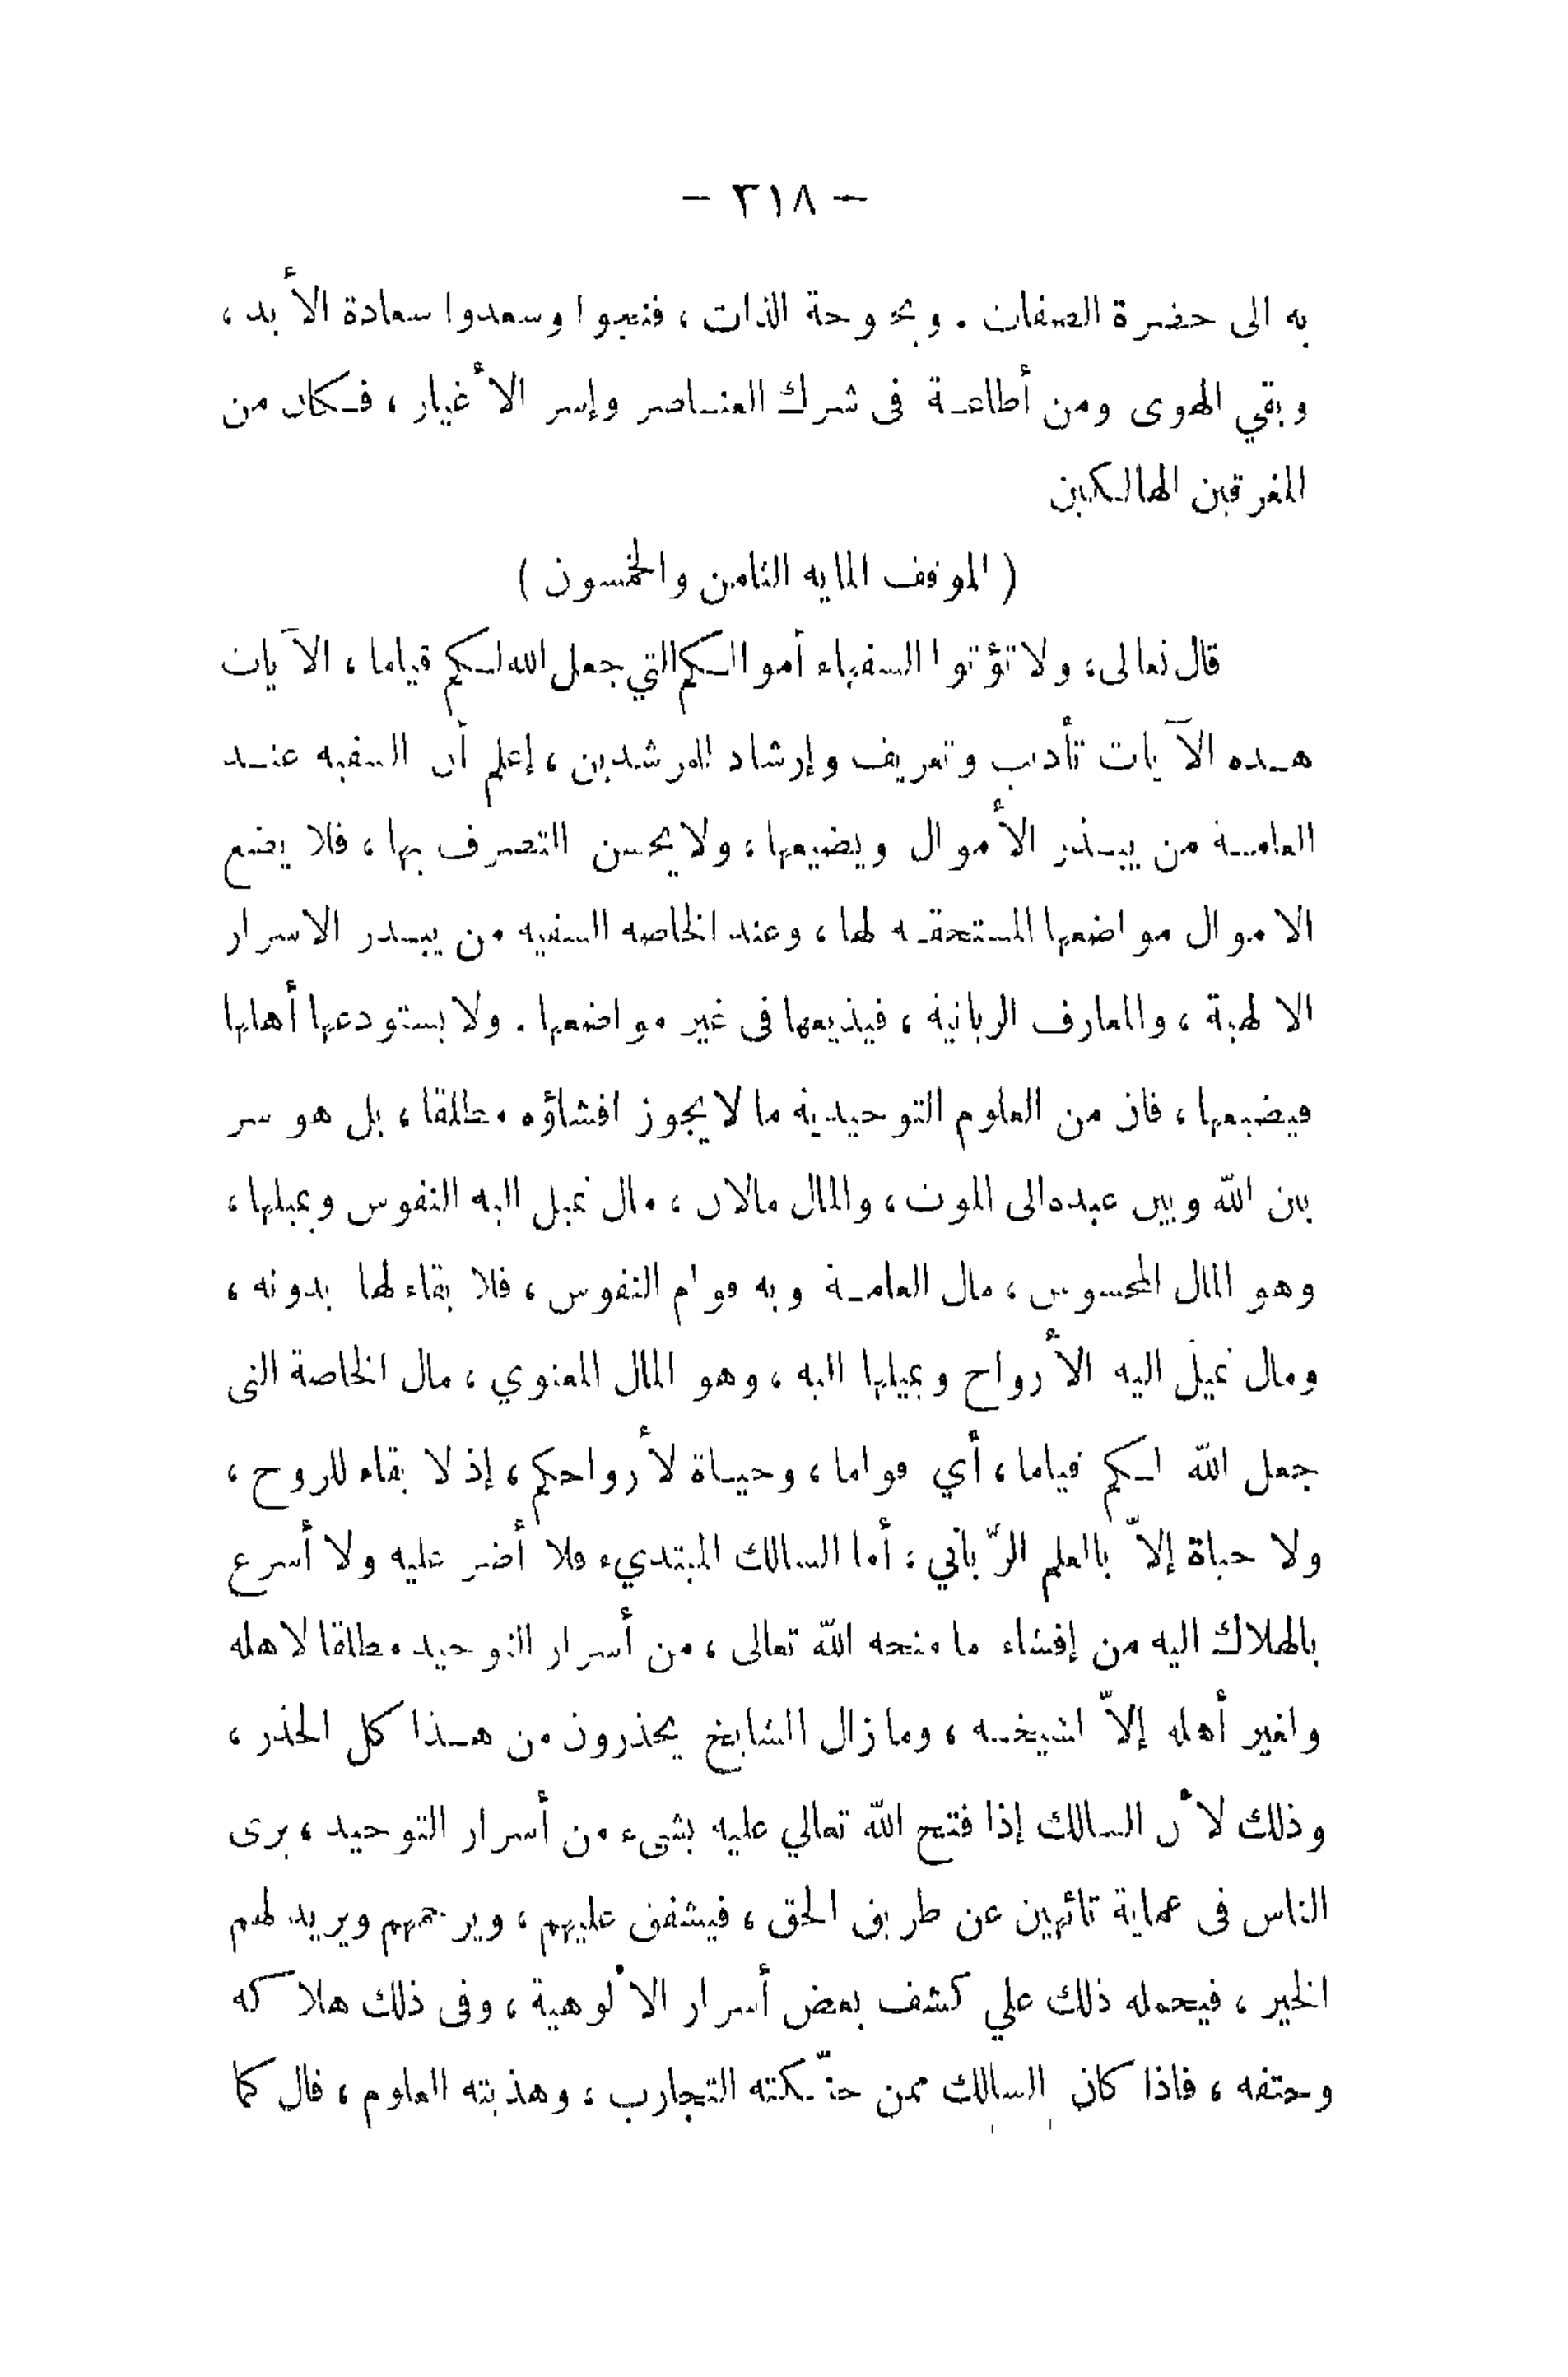 — ٣١٨ —
به الى حضرة الصفات . وبحوحة الذات ، فنجوا وسعدوا سعادة الأبد ،
وبقي الهوى ومن أطاعة فى شرك العناصر وإسر الأغيار ، فكان من
المغرقين الهالكين
( الموقف المايه الثامن والخمسون )
قال تعالى ؛ ولا تؤتوا السفهاء أموالكم التي جعل الله لكم قياما ، الآيات
هذه الآيات تأديب وتعريف وإرشاد للمرشدين ، إعلم أن السفيه عند
العامة من يبذر الأموال ويضيعها ، ولا يحسن التصرف بها ، فلا يضع
الاموال مواضعها المستحقه لها ، وعند الخاصه السفيه من يبدر الاسرار
الالهية ، والمعارف الربانية ، فيذيعها فى غير مواضعها . ولا يستودعها أهلها
فيضيعها ، فان من العلوم التوحيدية ما لا يجوز افشاؤه مطلقا ، بل هو سر
بين الله وبين عبده الى الموت ، والمال مالان ، مال تميل اليه النفوس ويميلها ،
وهو المال المحسوس ، مال العامة وبه قوام النفوس ، فلا بقاء لها بدونه ،
ومال تميل اليه الأرواح ويميلها اليه ، وهو المال المعنوي ، مال الخاصة التى
جعل الله لكم قياما ، أي قواما ، وحياة لأرواحكم ، إذ لا بقاء للروح ،
ولا حياة إلاّ بالعلم الرّباني ؛ أما السالك المبتديء فلا أضر عليه ولا أسرع
بالهلاك اليه من إفشاء ما منحه الله تعالى ، من أسرار التوحيد مطلقا لاهله
ولغير أهله إلاّ لشيخه ، وما زال المشايخ يحذرون من هذا كل الحذر ،
وذلك لأن السالك إذا فتح الله تعالي عليه بشىء من أسرار التوحيد ، يرى
الناس فى عماية تائهين عن طريق الحق ، فيشفق عليهم ، ويرحمهم ويريد لهم
الخير ، فيحمله ذلك علي كشف بعض أسرار الألوهية ، وفى ذلك هلاكه
وحتفه ، فاذا كان السالك ممن حنّكته التجارب ، وهذبته العلوم ، قال كما